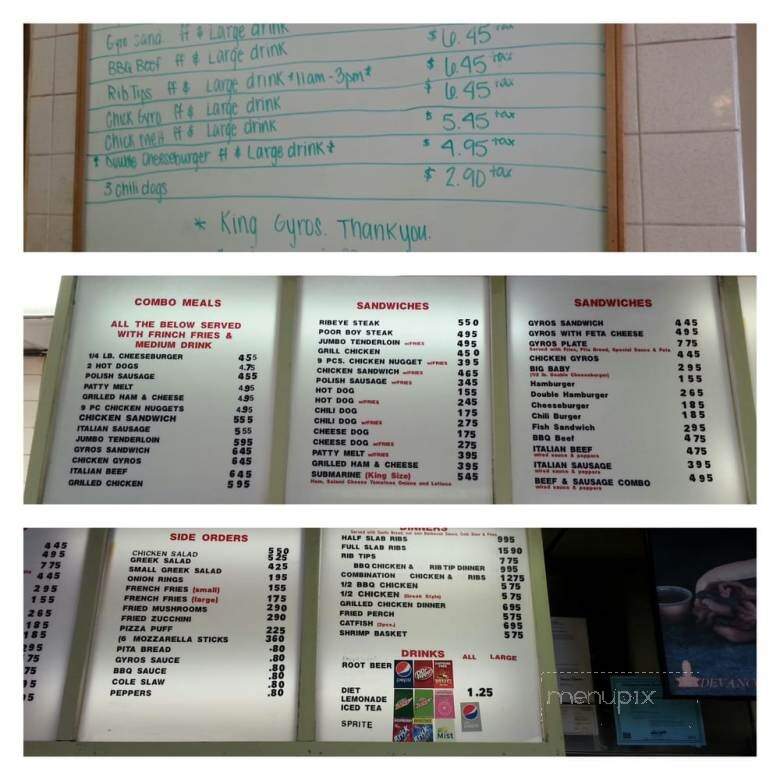 Gyro Sand ff & Large drink $6.45 tax
BBQ Beef ff & Large drink $6.45 tax
Rib Tips ff & Large drink *11am-3pm* $6.45 tax
Chick Gyro ff & Large drink
Chick melt ff & Large drink $5.45 tax
* Double Cheeseburger ff & Large drink * $4.95 tax
3 chili dogs $2.90 tax
* King Gyros. Thank you.
COMBO MEALS
ALL THE BELOW SERVED
WITH FRINCH FRIES &
MEDIUM DRINK
1/4 LB. CHEESEBURGER 455
2 HOT DOGS 4.75
POLISH SAUSAGE 455
PATTY MELT 4.95
GRILLED HAM & CHEESE 4.95
9 PC CHICKEN NUGGETS 4.95
CHICKEN SANDWICH 555
ITALIAN SAUSAGE 5.55
JUMBO TENDERLOIN 595
GYROS SANDWICH 645
CHICKEN GYROS 645
ITALIAN BEEF 645
GRILLED CHICKEN 595
SANDWICHES
RIBEYE STEAK 550
POOR BOY STEAK 495
JUMBO TENDERLOIN W/FRIES 495
GRILL CHICKEN 450
9 PCS. CHICKEN NUGGET W/FRIES 395
CHICKEN SANDWICH W/FRIES 465
POLISH SAUSAGE W/FRIES 345
HOT DOG 155
HOT DOG W/FRIES 245
CHILI DOG 175
CHILI DOG W/FRIES 275
CHEESE DOG 175
CHEESE DOG W/FRIES 275
PATTY MELT W/FRIES 395
GRILLED HAM & CHEESE 395
SUBMARINE (King Size) 545
Ham, Salami Cheese Tomatoes Onions and Lettuce
SANDWICHES
GYROS SANDWICH 445
GYROS WITH FETA CHEESE 495
GYROS PLATE 775
Served with Fries, Pita Bread, Special Sauce & Feta
CHICKEN GYROS 445
BIG BABY 295
(1/2 lb. Double Cheeseburger)
Hamburger 155
Double Hamburger 265
Cheeseburger 185
Chili Burger 185
Fish Sandwich 295
BBQ Beef 475
ITALIAN BEEF 475
w/red sauce & peppers
ITALIAN SAUSAGE 395
w/red sauce & peppers
BEEF & SAUSAGE COMBO 495
w/red sauce & peppers
445
495
775
445
295
155
265
185
185
295
75
75
95
95
SIDE ORDERS
CHICKEN SALAD 550
GREEK SALAD 525
SMALL GREEK SALAD 425
ONION RINGS 195
FRENCH FRIES (small) 155
FRENCH FRIES (large) 175
FRIED MUSHROOMS 290
FRIED ZUCCHINI 290
PIZZA PUFF 225
(6 MOZZARELLA STICKS 360
PITA BREAD .80
GYROS SAUCE .80
BBQ SAUCE .80
COLE SLAW .80
PEPPERS .80
DINNERS
HALF SLAB RIBS 995
FULL SLAB RIBS 1590
RIB TIPS 775
BBQ CHICKEN & RIB TIP DINNER 995
COMBINATION CHICKEN & RIBS 1275
1/2 BBQ CHICKEN 575
1/2 CHICKEN (Greek Style) 575
GRILLED CHICKEN DINNER 695
FRIED PERCH 575
CATFISH (2pcs.) 695
SHRIMP BASKET 575
DRINKS ALL LARGE
ROOT BEER pepsi
DIET
LEMONADE 1.25
ICED TEA
SPRITE
Mist
DEVANCO
menupix